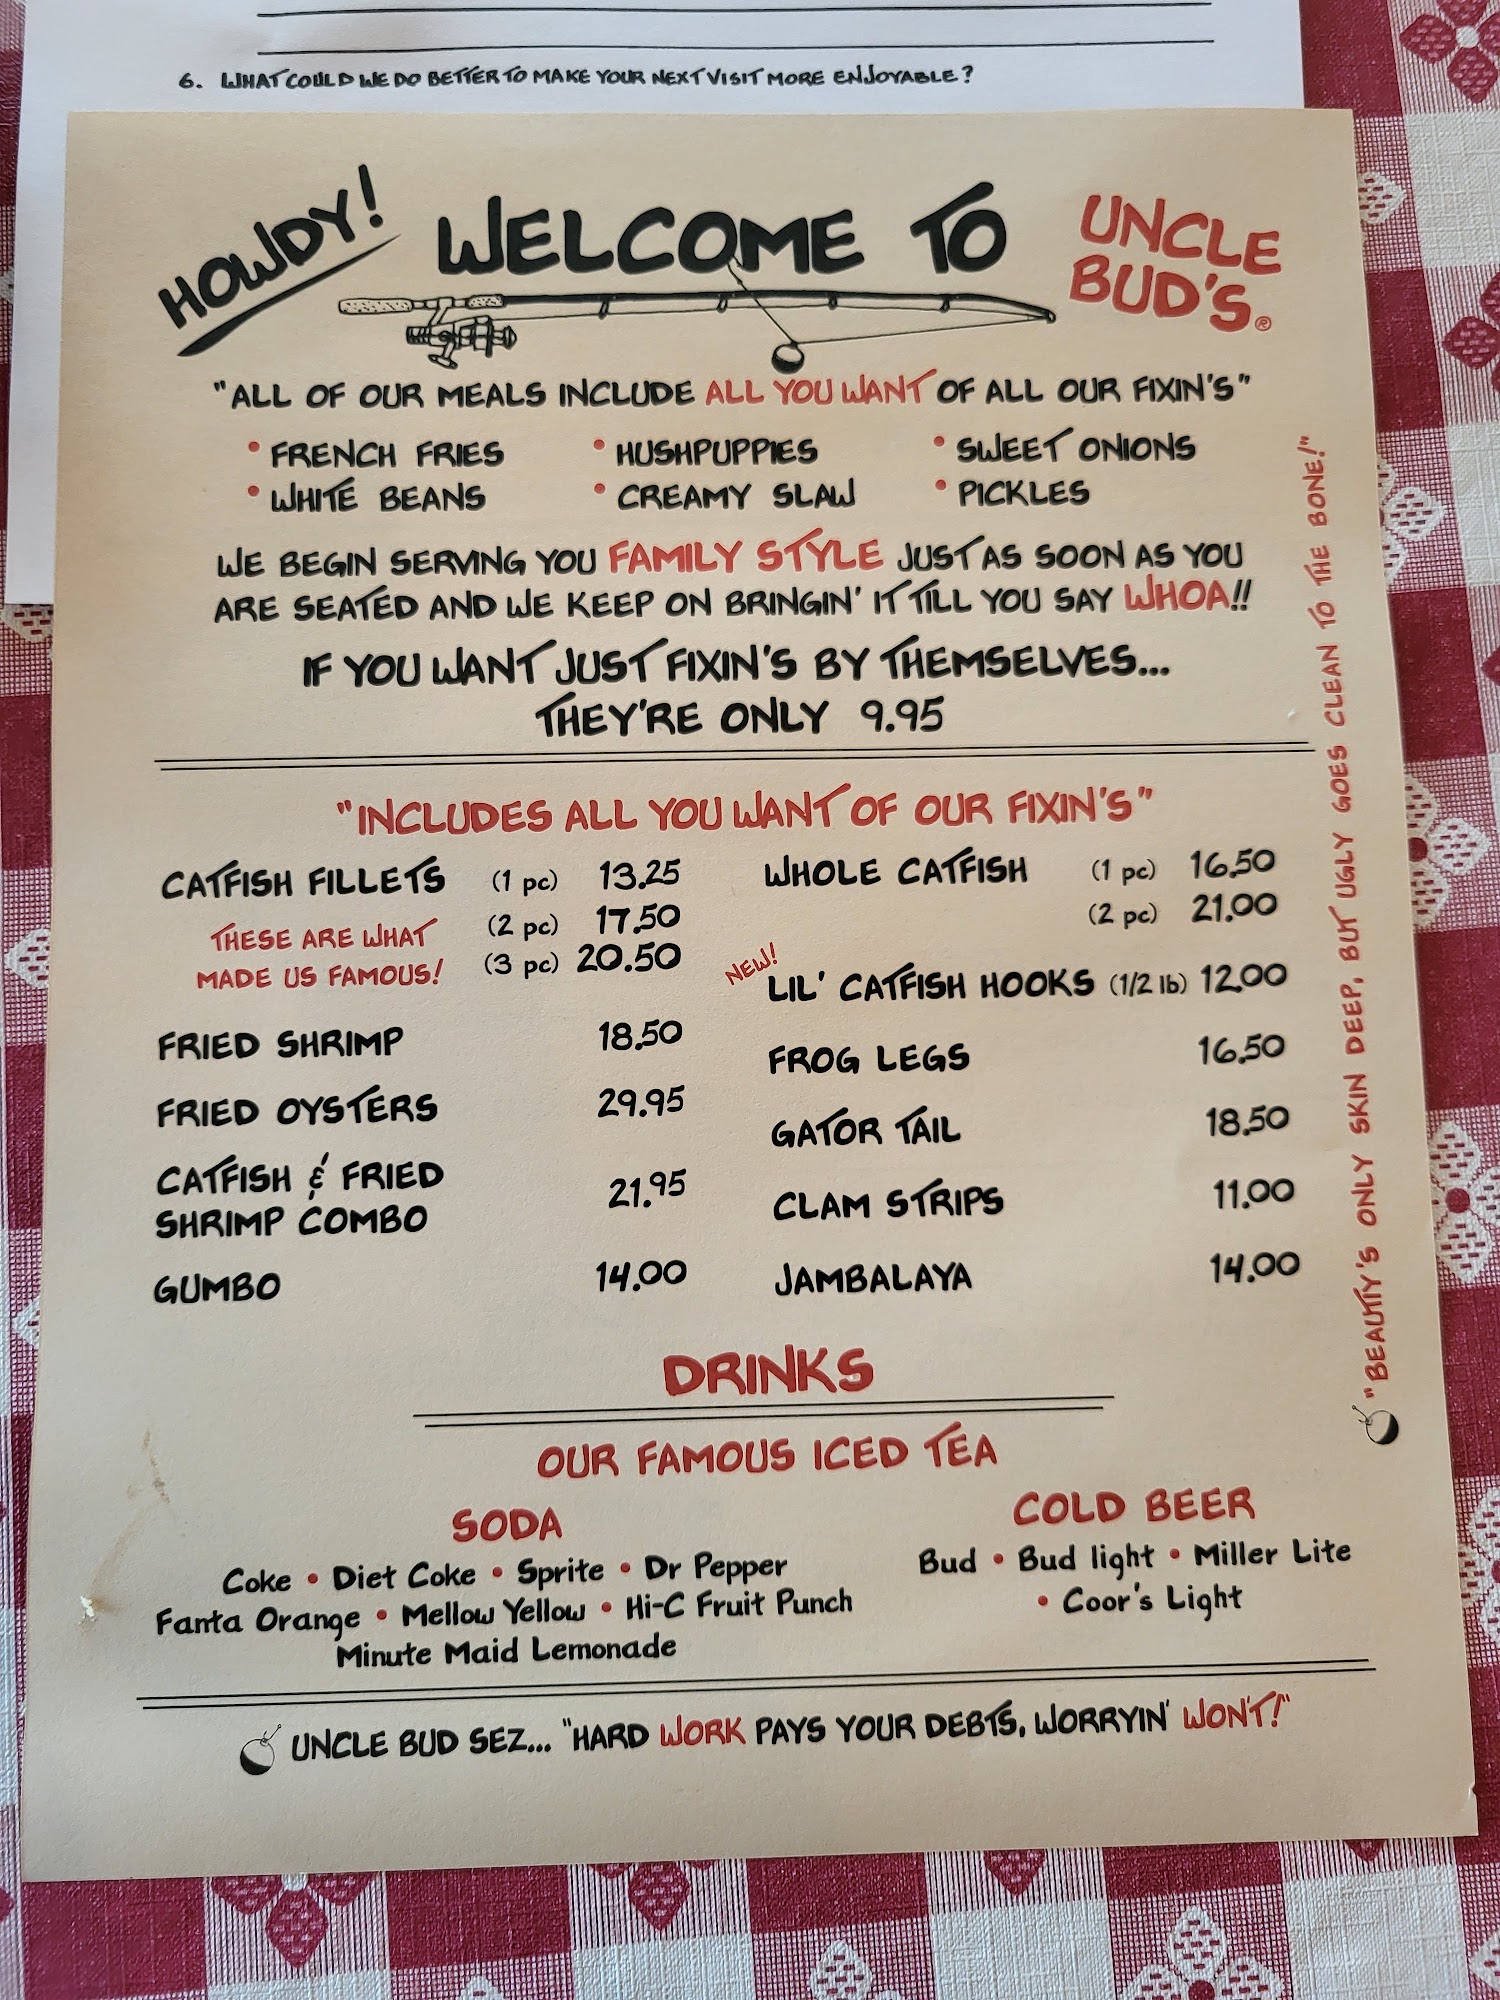 6. WHAT COULD WE DO BETTER TO MAKE YOUR NEXT VISIT MORE ENJOYABLE?
HOWDY! WELCOME TO UNCLE
BUD'S®
"ALL OF OUR MEALS INCLUDE ALL YOU WANT OF ALL OUR FIXIN'S"
• FRENCH FRIES • HUSHPUPPIES • SWEET ONIONS
• WHITE BEANS • CREAMY SLAW • PICKLES
WE BEGIN SERVING YOU FAMILY STYLE JUST AS SOON AS YOU
ARE SEATED AND WE KEEP ON BRINGIN' IT TILL YOU SAY WHOA!!
IF YOU WANT JUST FIXIN'S BY THEMSELVES...
THEY'RE ONLY 9.95
"INCLUDES ALL YOU WANT OF OUR FIXIN'S"
CATFISH FILLETS (1 pc) 13.25
THESE ARE WHAT (2 pc) 17.50
MADE US FAMOUS! (3 pc) 20.50
FRIED SHRIMP 18.50
FRIED OYSTERS 29.95
CATFISH & FRIED
SHRIMP COMBO 21.95
GUMBO 14.00
WHOLE CATFISH (1 pc) 16.50
(2 pc) 21.00
NEW!
LIL' CATFISH HOOKS (1/2 lb) 12.00
FROG LEGS 16.50
GATOR TAIL 18.50
CLAM STRIPS 11.00
JAMBALAYA 14.00
"BEAUTIY'S ONLY SKIN DEEP, BUT UGLY GOES CLEAN TO THE BONE!"
DRINKS
OUR FAMOUS ICED TEA
SODA
Coke • Diet Coke • Sprite • Dr Pepper
Fanta Orange • Mellow Yellow • Hi-C Fruit Punch
Minute Maid Lemonade
COLD BEER
Bud • Bud light • Miller Lite
• Coor's Light
UNCLE BUD SEZ... "HARD WORK PAYS YOUR DEBTS, WORRYIN' WON'T!"